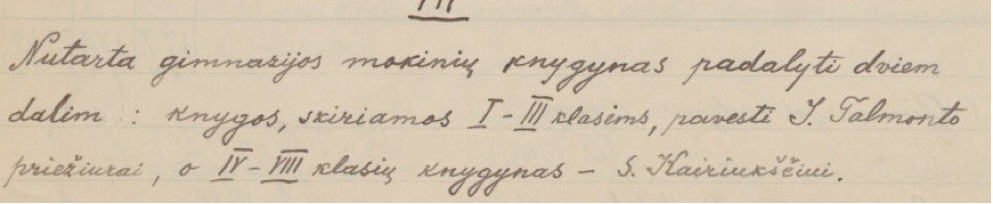 VII
Nutarta gimnazijos mokinių knygynas padalyti dviem
dalim : knygos, skiriamos I-III klasėms, pavesti J. Talmonto
priežiurai, o IV-VIII klasių knygynas - S. Kairiukščiui.